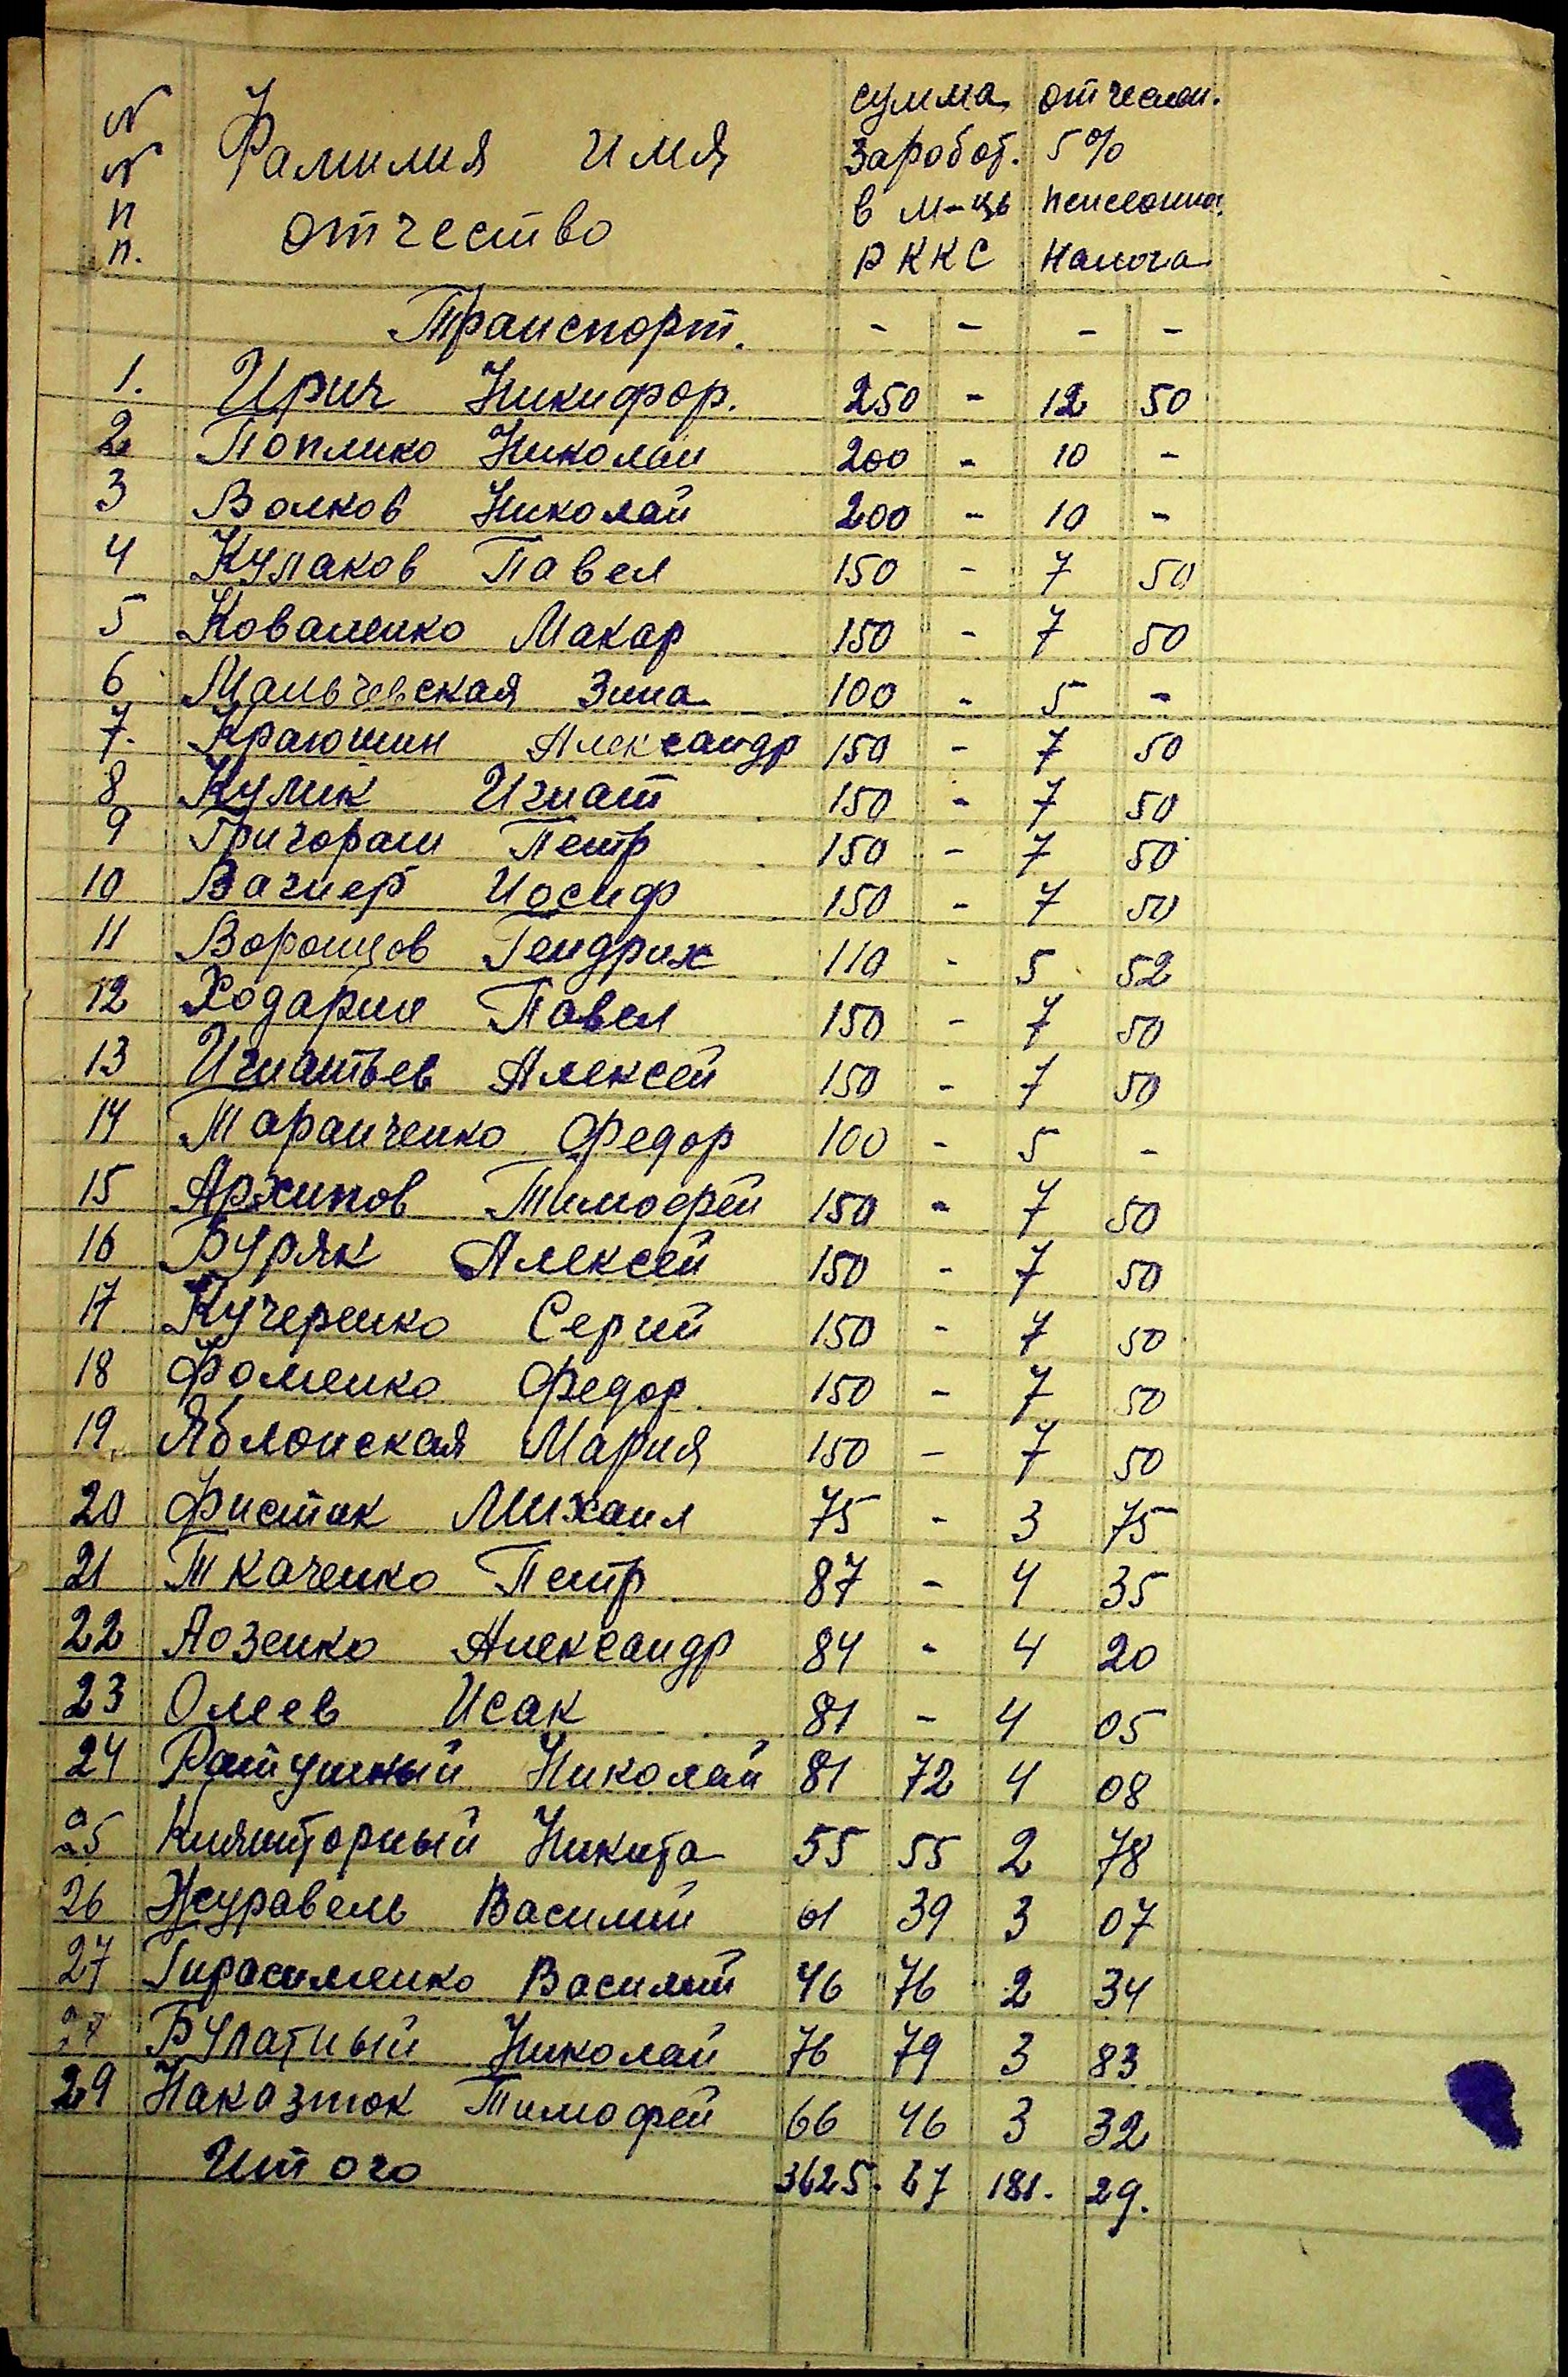 N N п п. Фамилия имя отчество сумма заробот. в м-ць РККС отчислен. 5% пенсионно. налога
Транспорт. - - - -
1. Ирич Никифор. 250 - 12 50
2 Поплико Николай 200 - 10 -
3 Волков Николай 200 - 10 -
4 Кулаков Павел 150 - 7 50
5 Коваленко Макар 150 - 7 50
6 Мальчевская Зина 100 - 5 -
7. Краюшин Александр 150 - 7 50
8 Кулик Игнат 150 - 7 50
9 Григораш Петр 150 - 7 50
10 Вагнер Иосиф 150 - 7 50
11 Воронцов Гендрих 110 - 5 52
12 Ходарин Павел 150 - 7 50
13 Игнатьев Алексей 150 - 7 50
14 Таранченко Федор 100 - 5 -
15 Архипов Тимофей 150 - 7 50
16 Буряк Алексей 150 - 7 50
17 Кучеренко Сергий 150 - 7 50
18 Фоменко Федор. 150 - 7 50
19. Яблонская Мария 150 - 7 50
20 Фистак Михаил 75 - 3 75
21 Ткаченко Петр 87 - 4 35
22 Лозенко Александр 84 - 4 20
23 Олеев Исак 81 - 4 05
24 Ратушный Николай 81 72 4 08
25 Никита 55 55 2 78
26 Журавель Василий 61 39 3 07
27 Гирасименко Василий 46 76 2 34
28 Булатный Николай 76 79 3 83
29 Наказток Тимофей 66 46 3 32
Итого 3625. 67 181. 29.